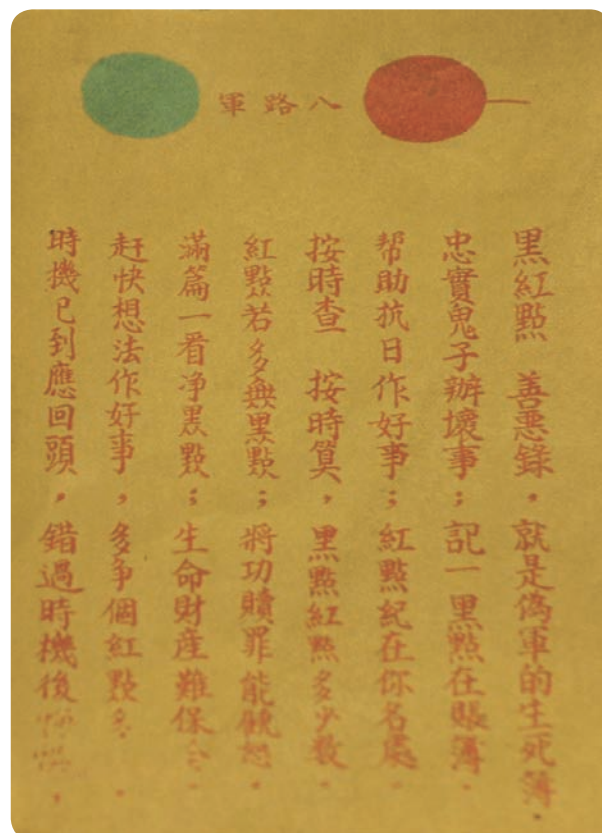 八路軍
黑紅點 善惡錄,就是偽軍的生死簿.
忠實鬼子辦壞事;記一黑點在賬簿.
帮助抗日作好事;紅點紀在你名處.
按時查 按時算,黑點紅點多少数.
紅點若多與黑點;將功贖罪能饒恕.
滿篇一看净黑點;生命財産難保.
赶快想法作好事,多争個紅點.
時機已到應回頭,錯過時機後,